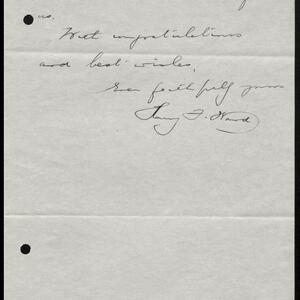 us.
With congratulations
and best wishes,
Ever faithfully yours
Harry F. Ward